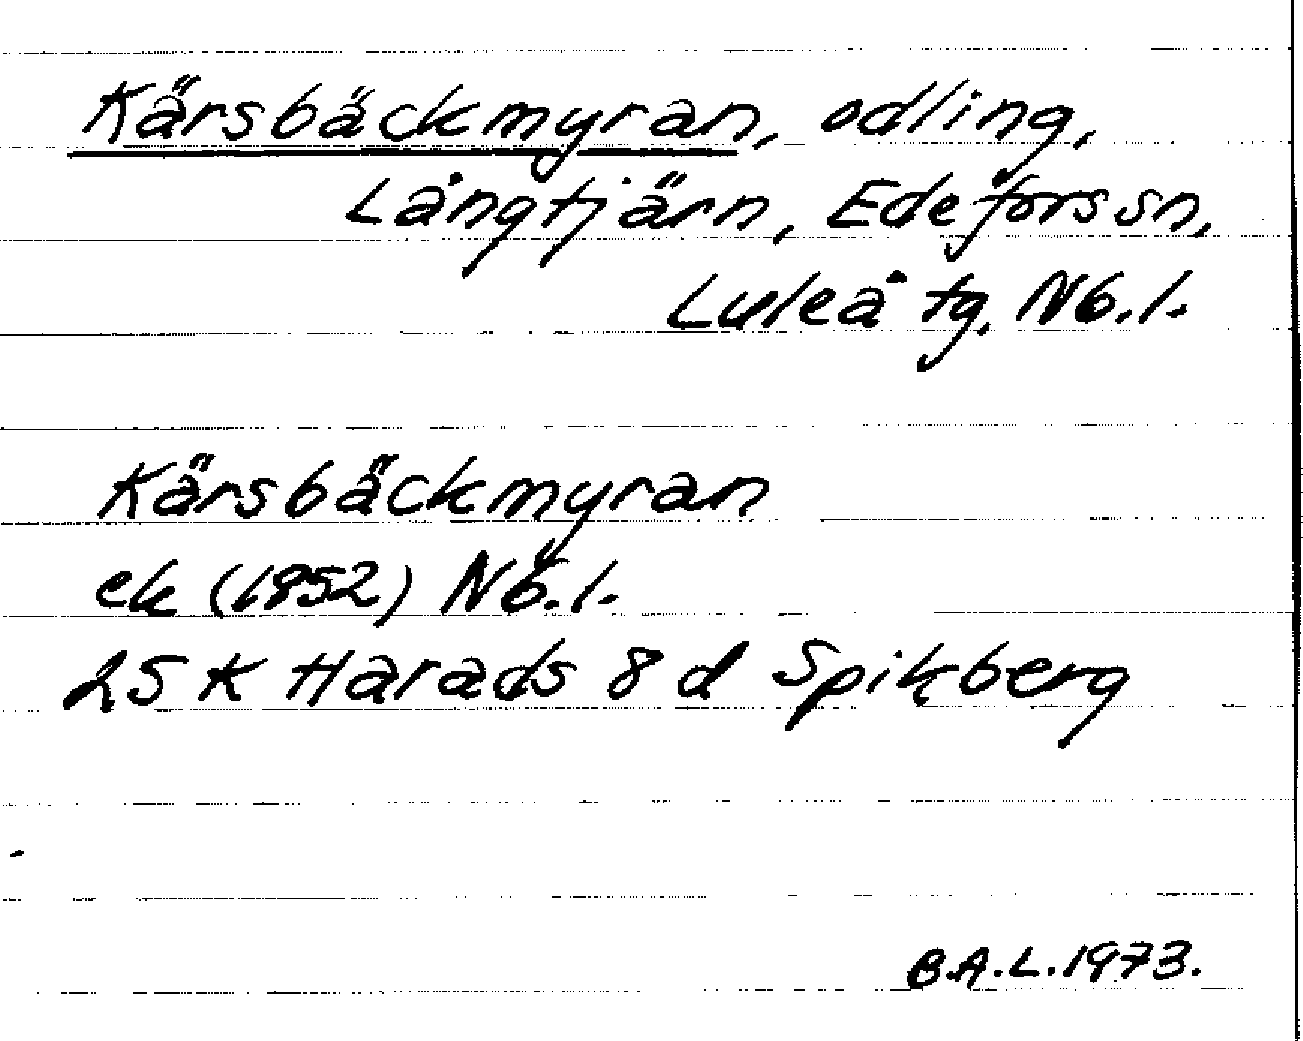 Kärsbäckmyran, odling,
Långtjärn, Edeforssn,
Luleå tg. Nb.l.
Kärsbäckmyran
ek (1952) Nb.l.
25 K Harads 8 d Spikberg
B.A.L.1973.